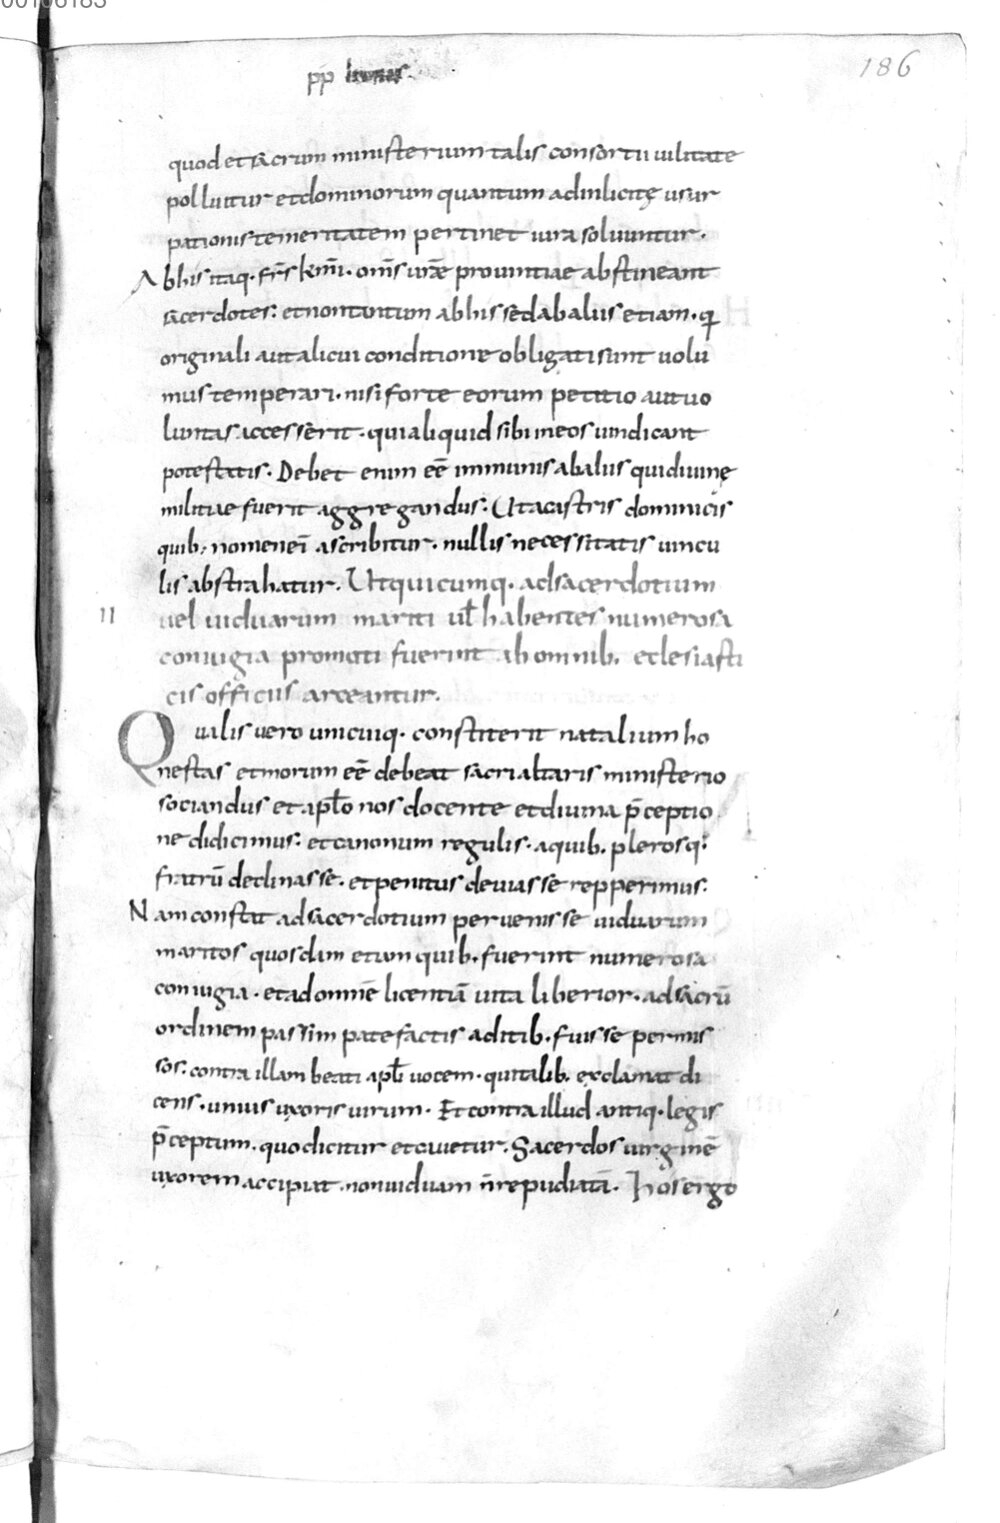 00106183
186
pp leonis.
quod et sacrum ministerium talis consortii uilitate
polluitur et dominorum quantum ad inlicitę usur
pationis temeritatem pertinet iura soluuntur.
Ab his itaq. fr̄s km̄i. om̄s ur̄ae prouintiae abstineant
sacerdotes: et non tantum ab his sed ab aliis etiam. q̄
originali aut alicui conditione obligati sunt uolu
mus temperari. nisi forte eorum petitio aut uo
luntas accesserit. qui aliquid sibi in eos uindicant
potestatis. Debet enim eē inmunis ab aliis qui diuinę
militiae fuerit aggregandus: Ut a castris dominicis
quib; nomen eī ascribitur. nullis necessitatis uincu
lis abstrahatur. Ut quicumq. ad sacerdotium
II
uel uiduarum mariti ul̄ habentes numerosa
coniugia promoti fuerint ab omnib. eclesiasti
cis officiis arceantur.
Qualis uero unicuiq. constiterit natalium ho
nestas et morum eē debeat sacri altaris ministerio
sociandus et apl̄o nos docente et diuina p̄ceptio
ne didicimus: et canonum regulis. a quib. plerosq;
fratrū declinasse. et penitus deuiasse repperimus:
Nam constat ad sacerdotium peruenisse uiduarum
maritos quosdam etiam quib. fuerint numerosa
coniugia. et ad omnē licentiā uita liberior. ad sacrū
ordinem passim patefactis aditib. fuisse permis
sos: contra illam beati apl̄i uocem. qui talib. exclamat di
cens. unius uxoris uirum. Et contra illud antiq. legis
p̄ceptum. quo dicitur et cauetur. Sacerdos uirginē
uxorem accipiat. non uiduam n̄ repudiatā. Hos ergo